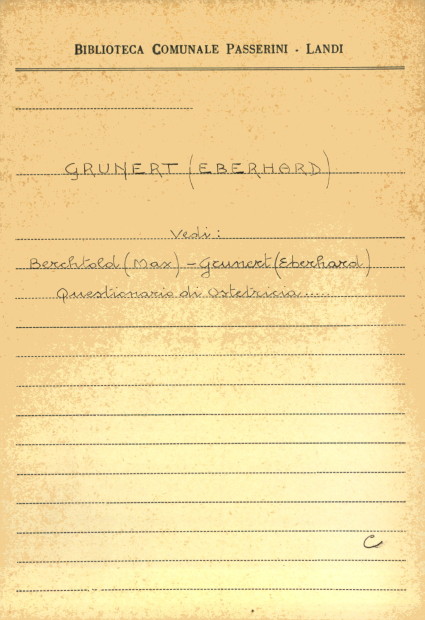 BIBLIOTECA COMUNALE PASSERINI - LANDI
GRUNERT (EBERHARD)
Vedi:
Berchtold (Max) - Grunert (Eberhard)
Questionario di Ostetricia.....
C